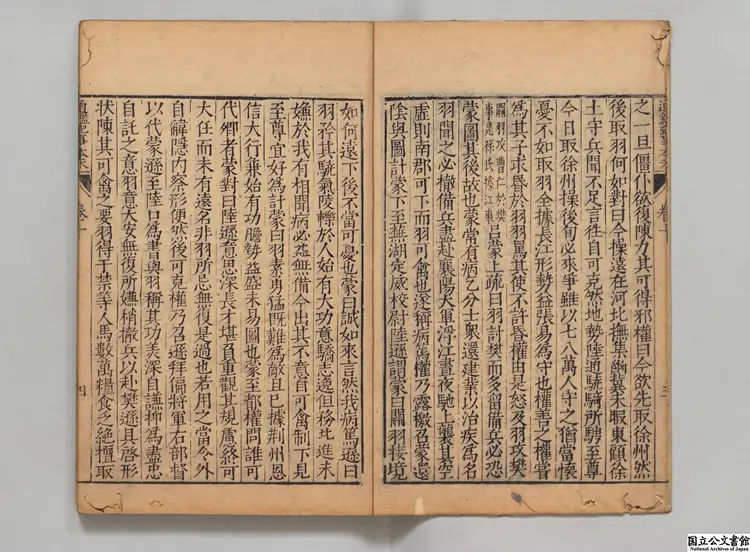 之一旦僵仆欲復陳力其可得邪權曰今欲先取徐州然
後取羽何如對曰今操遠在河北撫集幽冀未暇東顧徐
土守兵聞不足言往自可克然地勢陸通驍騎所騁至尊
今日取徐州操後旬必來爭雖以七八萬人守之猶當懷
憂不如取羽全據長江形勢益張易為守也權善之權嘗
為其子求昏於羽羽罵其使不許昏權由是怒及羽攻樊
關羽攻曹仁於樊
事見孫氏據江東
呂蒙上疏曰羽討樊而多留備兵必恐
蒙圖其後故也蒙常有病乞分士衆還建業以治疾為名
羽聞之必撤備兵盡赴襄陽大軍浮江晝夜馳上襲其空
虛則南郡可下而羽可禽也遂稱病篤權乃露檄召蒙還
陰與圖計蒙下至蕪湖定威校尉陸遜謂蒙曰關羽接境
如何遠下後不當可憂也蒙曰誠如來言然我病篤遜曰
羽矜其驍氣陵轢於人始有大功意驕志逸但務北進未
嫌於我有相聞病必益無備今出其不意自可禽制下見
至尊宜好為計蒙曰羽素勇猛既難為敵且已據荆州恩
信大行兼始有功膽勢益盛未易圖也蒙至都權問誰可
代卿者蒙對曰陸遜意思深長才堪負重觀其規慮終可
大任而未有遠名非羽所忌無復是過也若用之當令外
自韜隱內察形便然後可克權乃召遜拜偏將軍右部督
以代蒙遜至陸口為書與羽稱其功美深自謙抑為盡忠
自託之意羽意大安無復所嫌稍撤兵以赴樊遜具啓形
狀陳其可禽之要羽得于禁等人馬數萬糧食乏絕擅取
卷十
四
国立公文書館
National Archives of Japan